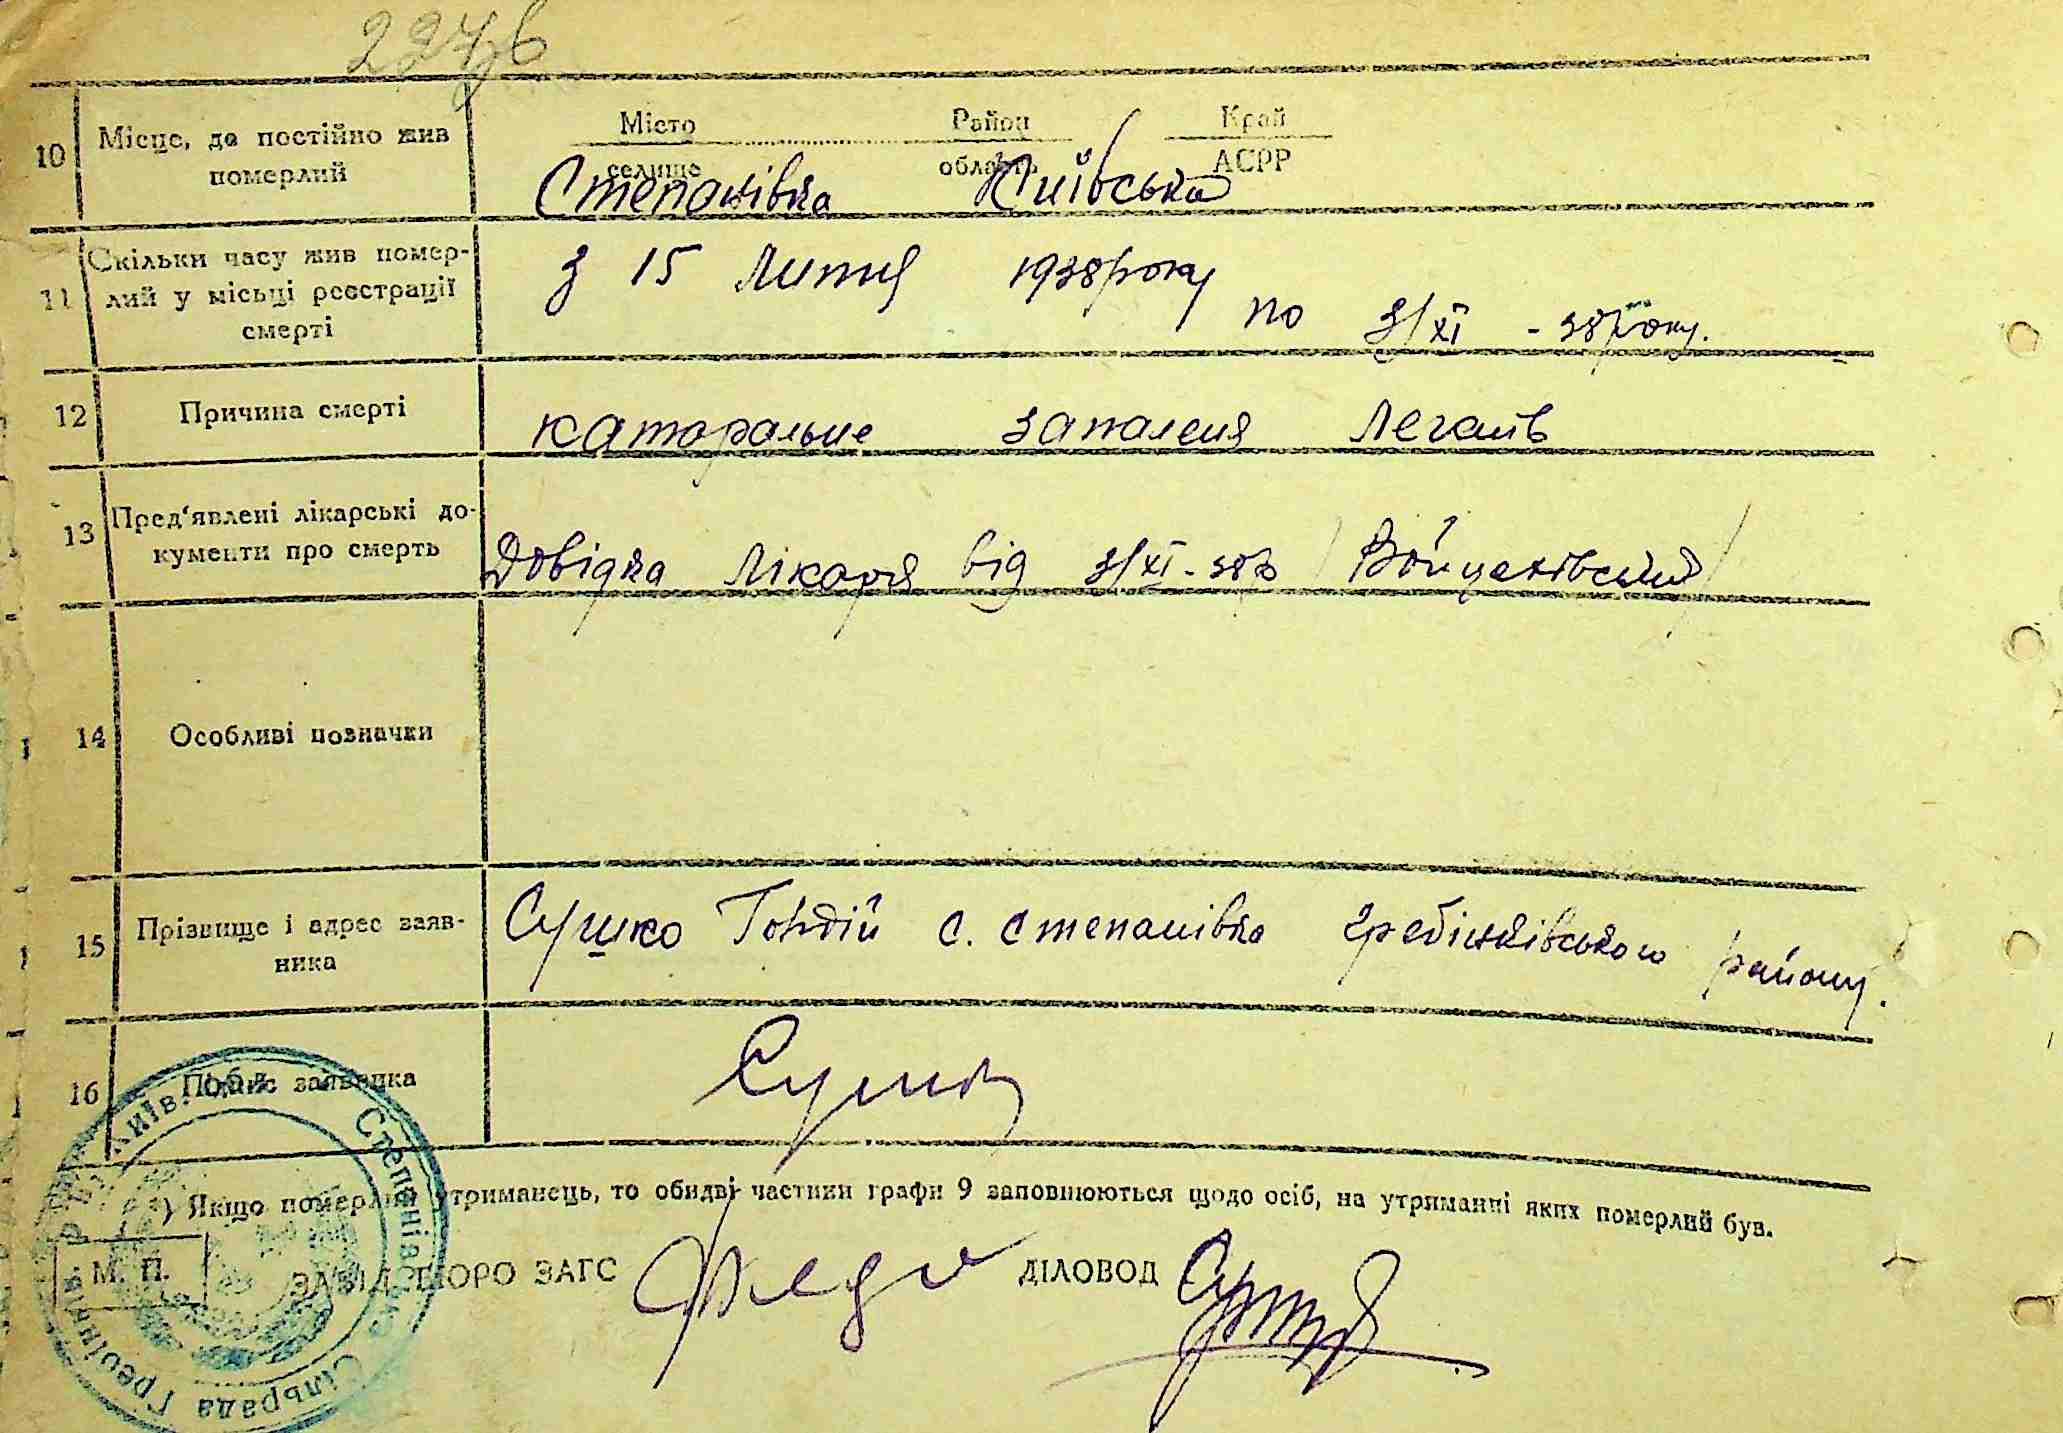 227б
10 Місце, де постійно жив померлий
Місто Район Край
селище область АСРР
Степанівка Київська
11 Скільки часу жив помер-
лий у місьці реєстрації
смерті
З 15 Липня 1938 року
по 3/XI - 38 року.
12 Причина смерті
каторальне запаленя легенів
13 Пред'явлені лікарські до-
кументи про смерть
Довідка лікаря від 3/XI - 38 р /Войцехівський/
14 Особливі позначки
15 Прізвище і адрес заяв-
ника
Сушко Гордій с. Степанівка Гребінківського району.
16 Підпис заявника
Сушко
*) Якщо померлий утриманець, то обидві частини графи 9 заповнюються щодо осіб, на утриманні яких померлий був.
М. П. ЗАВІД. БЮРО ЗАГС ДІЛОВОД
Степанівська Сільрада Гребінків Київ. обл.